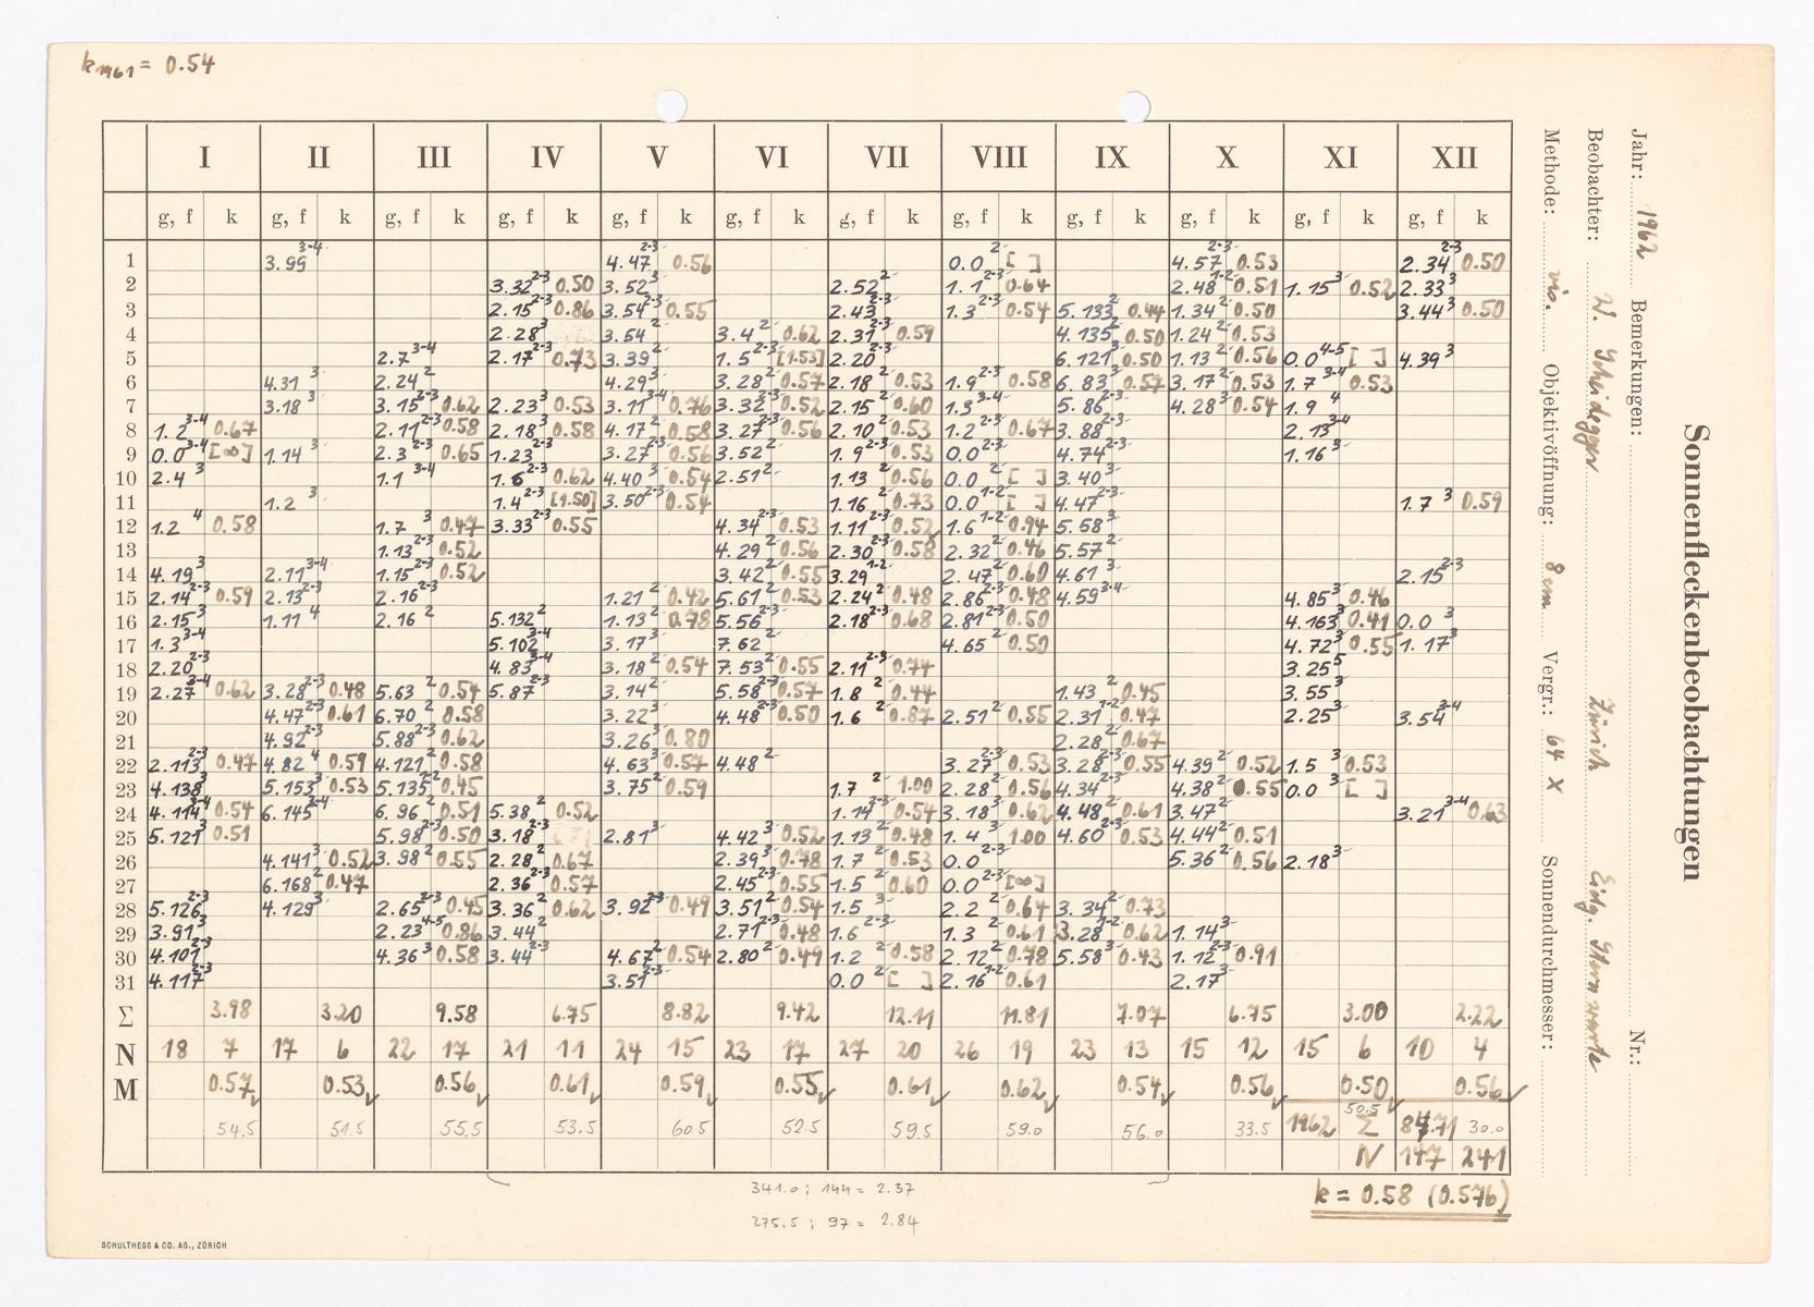 k1961 = 0.54
I II III IV V VI VII VIII IX X XI XII
g, f k g, f k g, f k g, f k g, f k g, f k g, f k g, f k g, f k g, f k g, f k g, f k
1 3.99 3-4 4.47 2-3 0.56 0.0 2 [ ] 4.57 2-3 0.53 2.34 2-3 0.50
2 3.32 2-3 0.50 3.52 3 2.52 2 1.1 2-3 0.64 2.48 1-2 0.51 1.15 3 0.52 2.33 3
3 2.15 2-3 0.86 3.54 2-3 0.55 2.43 2-3 1.3 2-3 0.54 5.133 2 0.44 1.34 2 0.50 3.44 3 0.50
4 2.28 3 3.54 2 3.4 2 0.62 2.31 2-3 0.59 4.135 2 0.50 1.24 2 0.53
5 2.7 3-4 2.17 2-3 0.73 3.39 2 1.5 2-3 [1.53] 2.20 2-3 6.121 3 0.50 1.13 2 0.56 0.0 4-5 [ ] 4.39 3
6 4.31 3 2.24 2 4.29 3 3.28 2 0.57 2.18 2 0.53 1.9 2-3 0.58 6.83 3 0.57 3.17 2 0.53 1.7 3-4 0.53
7 3.18 3 3.15 2-3 0.62 2.23 3 0.53 3.11 3-4 0.76 3.32 2-3 0.52 2.15 2 0.60 1.3 3-4 5.86 2-3 4.28 3 0.54 1.9 4
8 1.2 3-4 0.67 2.11 2-3 0.58 2.18 3 0.58 4.17 2 0.58 3.27 2-3 0.56 2.10 2 0.53 1.2 2-3 0.67 3.88 2 2.13 3-4
9 0.0 3-4 [∞] 1.14 3 2.3 2-3 0.65 1.23 2-3 3.27 2-3 0.56 3.52 2 1.9 2-3 0.53 0.0 2-3 4.74 2-3 1.16 3
10 2.4 3 1.1 3-4 1.6 2-3 0.62 4.40 3 0.54 2.51 2 1.13 2 0.56 0.0 2 [ ] 3.40 3
11 1.2 3 1.4 2-3 [1.50] 3.50 2-3 0.54 1.16 2 0.73 0.0 1-2 [ ] 4.47 2-3 1.7 3 0.59
12 1.2 4 0.58 1.7 3 0.47 3.33 2-3 0.55 4.34 2-3 0.53 1.11 2-3 0.52 1.6 1-2 0.94 5.58 3
13 1.13 2-3 0.52 4.29 2 0.56 2.30 2-3 0.58 2.32 2 0.46 5.57 2
14 4.19 3 2.11 3-4 1.15 2-3 0.52 3.42 2 0.55 3.29 1-2 2.47 2 0.60 4.61 3 2.15 2-3
15 2.14 2-3 0.59 2.13 2-3 2.16 2-3 1.21 2 0.42 5.61 2 0.53 2.24 2 0.48 2.86 2-3 0.48 4.59 3-4 4.85 3 0.46
16 2.15 3 1.11 4 2.16 2 5.132 2 1.13 2 0.78 5.56 2-3 2.18 2-3 0.68 2.81 2-3 0.50 4.163 3 0.41 0.0 3
17 1.3 3-4 5.102 3-4 3.17 3 7.62 2 4.65 2 0.50 4.72 3 0.55 1.17 3
18 2.20 2-3 4.83 3-4 3.18 2 0.54 7.53 2 0.55 2.11 2-3 0.74 3.25 5
19 2.27 3-4 0.62 3.28 2-3 0.48 5.63 2 0.54 5.87 2-3 3.14 2 5.58 2-3 0.57 1.8 2 0.44 1.43 2 0.45 3.55 3
20 4.47 2-3 0.61 6.70 2 0.58 3.22 3 4.48 2-3 0.50 1.6 2 0.87 2.51 2 0.55 2.31 1-2 0.47 2.25 3 3.54 3-4
21 4.92 2-3 5.88 2-3 0.62 3.26 3 0.80 2.28 2 0.67
22 2.113 2-3 0.47 4.82 4 0.59 4.121 2 0.58 4.63 2 0.57 4.48 2 3.27 2-3 0.53 3.28 2-3 0.55 4.39 2 0.52 1.5 3 0.53
23 4.138 3 5.153 3 0.53 5.135 1-2 0.45 3.75 2 0.59 1.7 2 1.00 2.28 2 0.56 4.34 2-3 4.38 2 0.55 0.0 3 [ ]
24 4.114 3-4 0.54 6.145 3-4 6.96 2 0.51 5.38 2 0.52 1.14 2-3 0.54 3.18 2 0.62 4.48 2 0.61 3.47 2 3.21 3-4 0.63
25 5.121 3 0.51 5.98 2-3 0.50 3.18 2-3 2.81 3 4.42 3 0.52 1.13 2 0.48 1.4 3 1.00 4.60 2-3 0.53 4.44 2 0.51
26 4.141 3 0.52 3.98 2 0.55 2.28 2 0.67 2.39 3 0.78 1.7 2 0.53 0.0 2-3 5.36 2 0.56 2.18 3
27 6.168 2 0.47 2.36 2-3 0.57 2.45 2-3 0.55 1.5 2 0.60 0.0 2-3 [∞]
28 5.126 2-3 4.129 3 2.65 2-3 0.45 3.36 2 0.62 3.92 2-3 0.49 3.51 2 0.54 1.5 3 2.2 2 0.64 3.34 2 0.73
29 3.91 3 2.23 4-5 0.86 3.44 2 2.71 2-3 0.48 1.6 2-3 1.3 2 0.61 3.28 1-2 0.62 1.14 3
30 4.101 2-3 4.36 3 0.58 3.44 2-3 4.67 2 0.54 2.80 2 0.49 1.2 2 0.58 2.12 2 0.78 5.58 3 0.43 1.12 2-3 0.91
31 4.117 2-3 3.51 2-3 0.0 2 [ ] 2.16 1-2 0.61 2.17 3
Σ 3.98 3.20 9.58 6.75 8.82 9.42 12.11 11.81 7.07 6.75 3.00 2.22
N 18 7 17 6 22 17 21 11 24 15 23 17 27 20 26 19 23 13 15 12 15 6 10 4
M 0.57 0.53 0.56 0.61 0.59 0.55 0.61 0.62 0.54 0.56 0.50 0.56
54.5 51.5 55.5 53.5 60.5 52.5 59.5 59.0 56.0 33.5 50.5 30.0
1962 Σ 84.71
N 147 241
341.0 ; 144 = 2.37
275.5 ; 97 = 2.84
k = 0.58 (0.576)
SCHULTHESS & CO. AG., ZÜRICH
Sonnenfleckenbeobachtungen
Jahr: 1962 Bemerkungen: Nr.:
Beobachter: W. Scheidegger Zürich Eidg. Sternwarte
Methode: vis. Objektivöffnung: 8 cm Vergr.: 64 x Sonnendurchmesser: